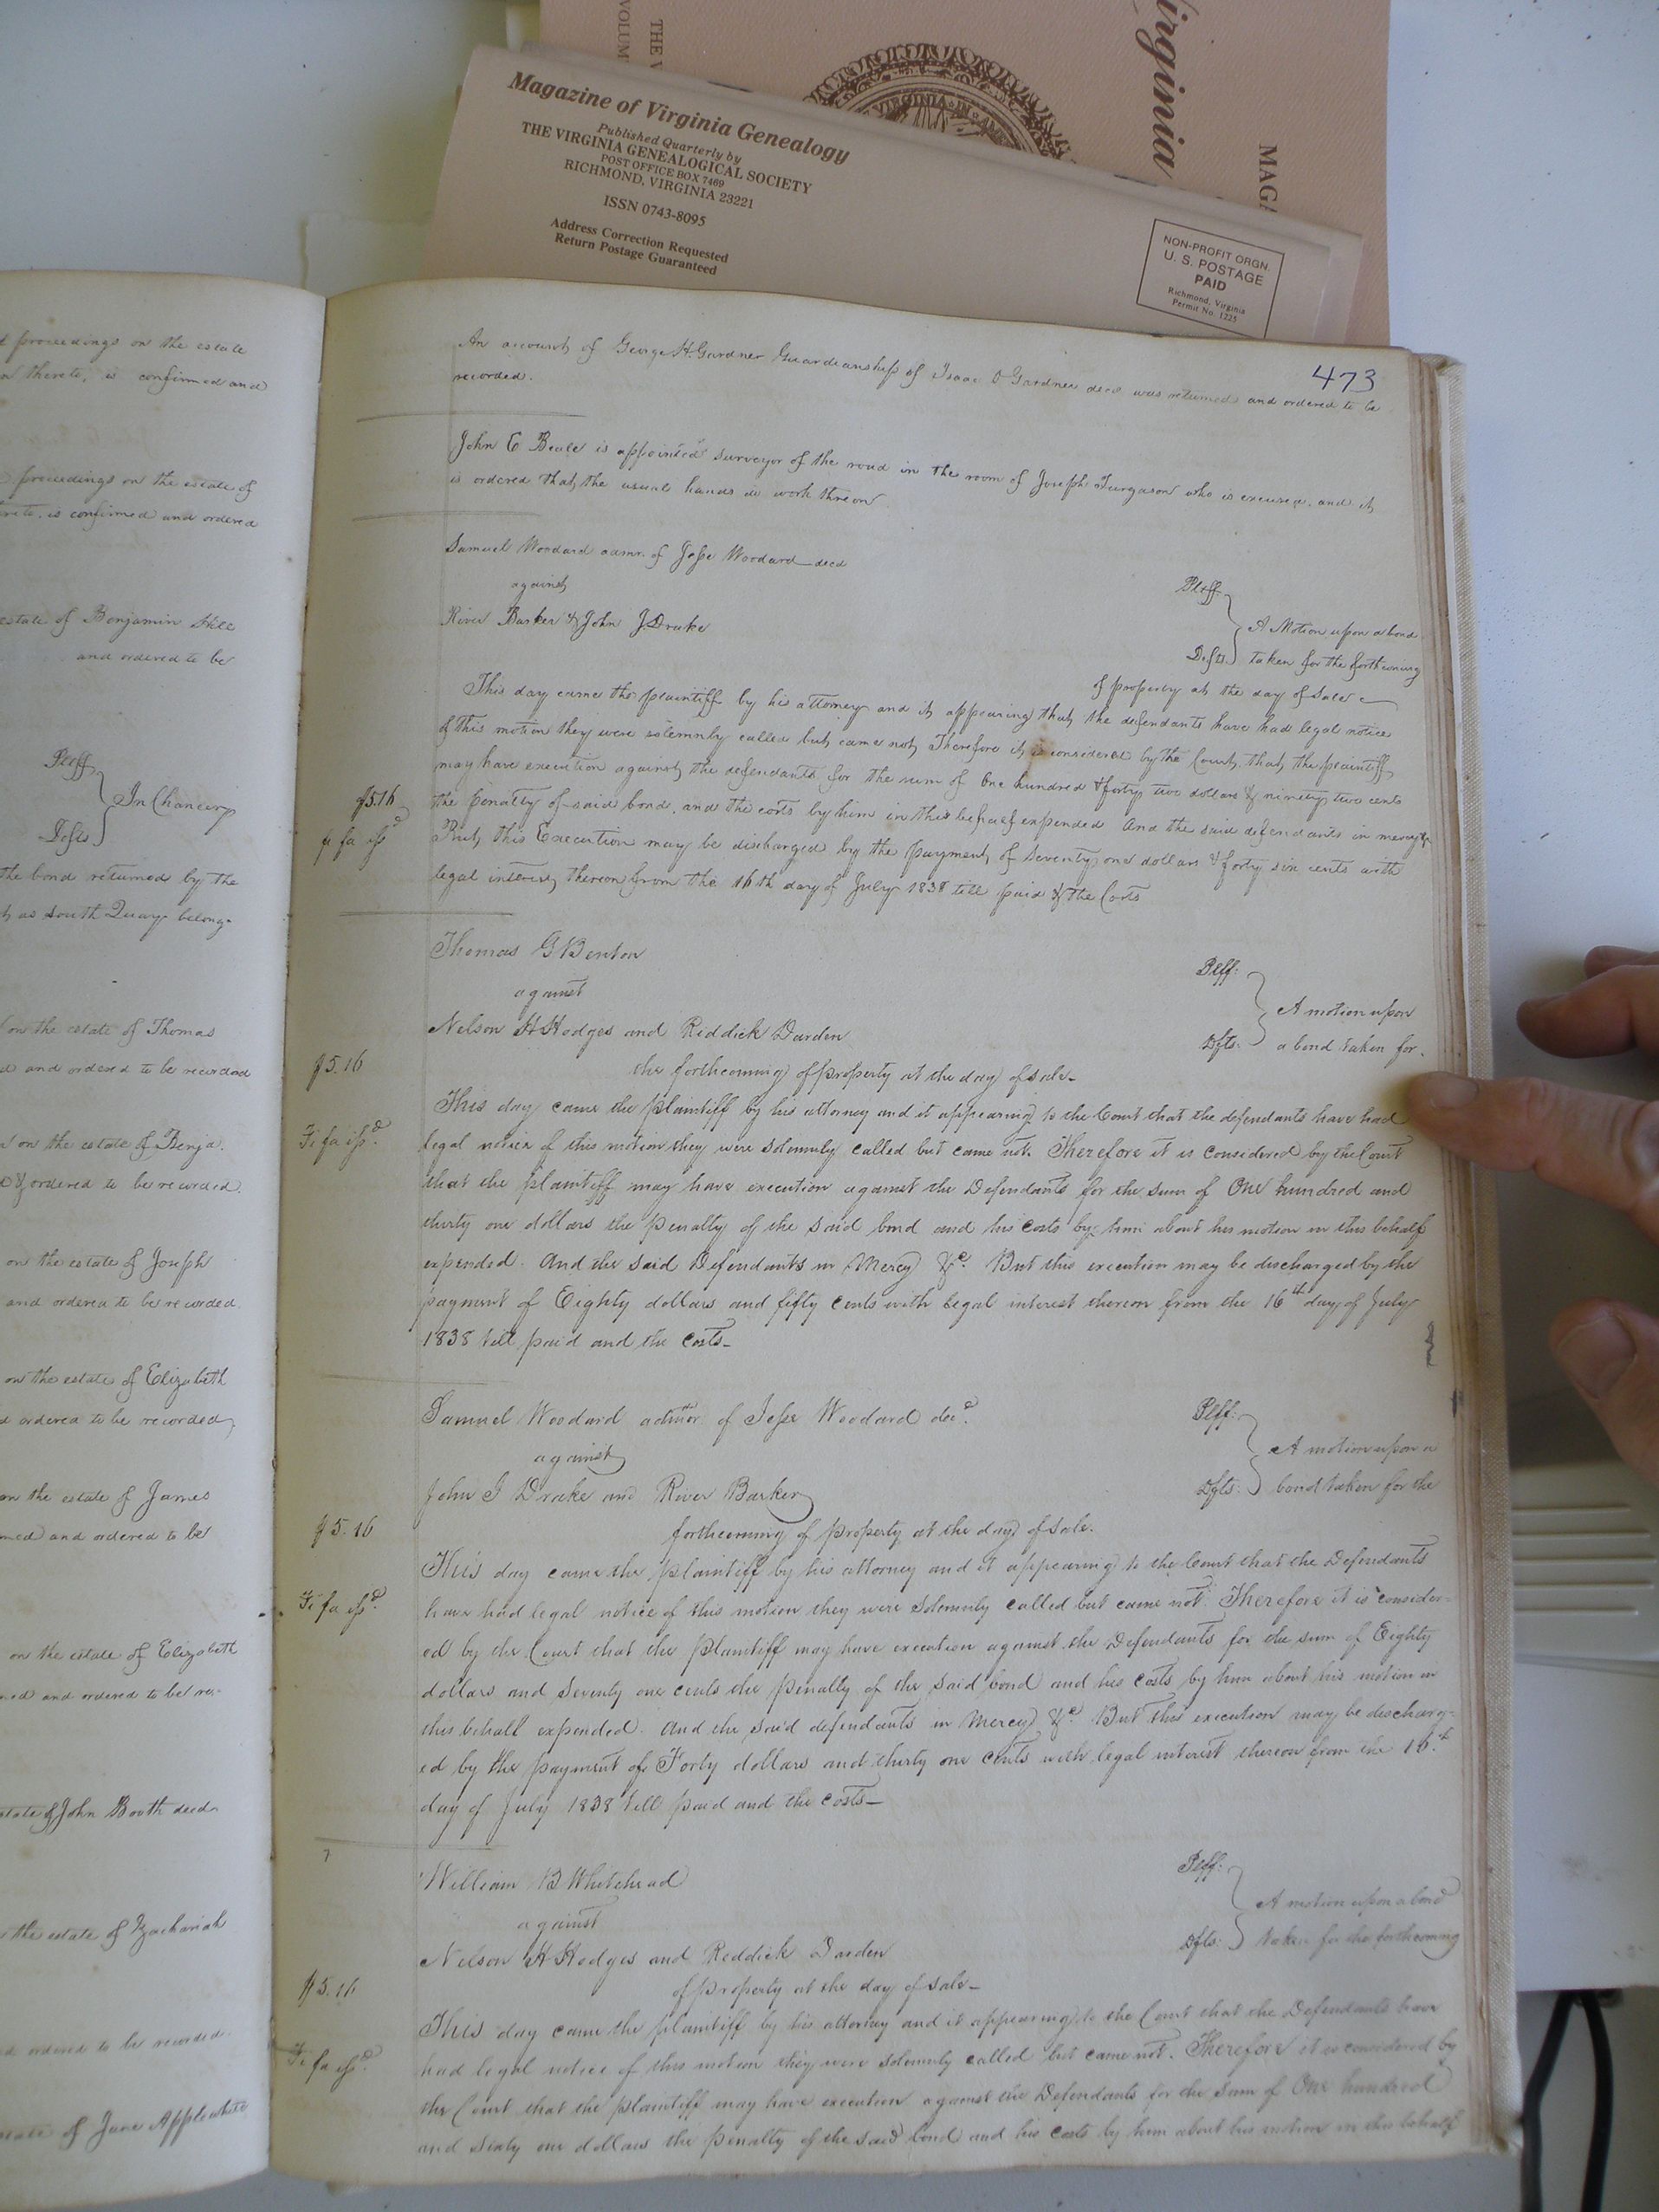 Virginia
MAGA
THE V
VOLUM
VIRGINIA IN
Magazine of Virginia Genealogy
Published Quarterly by
THE VIRGINIA GENEALOGICAL SOCIETY
POST OFFICE BOX 7469
RICHMOND, VIRGINIA 23221
ISSN 0743-8095
Address Correction Requested
Return Postage Guaranteed
NON-PROFIT ORGN.
U. S. POSTAGE
PAID
Richmond, Virginia
Permit No. 1225
proceedings on the estate
thereto, is confirmed and
proceedings on the estate of
is confirmed and ordered
estate of Benjamin
and ordered to be
Pltff
In Chancery
Defts
the bond returned by the
as South Quay belong-
on the estate of Thomas
and ordered to be recorded
on the estate of Benja.
& ordered to be recorded.
on the estate of Joseph
and ordered to be recorded.
on the estate of Elizabeth
ordered to be recorded
on the estate of James
and ordered to be
on the estate of Elizabeth
and ordered to be re-
estate of John Booth decd
the estate of Zachariah
ordered to be recorded.
of Jane Applewhite
473
An account of George H. Gardner Guardianship of Isaac O Gardner decd was returned and ordered to be
recorded.
John E Beale is appointed surveyor of the road in the room of Joseph Furgason who is excused, and it
is ordered that the usual hands do work threon
Samuel Woodard admr. of Jesse Woodard decd
Pltff.
against
River Barker & John J Drake
A Motion upon a bond
Defts. taken for the forthcoming
of property at the day of sale
This day came the plaintiff by his attorney and it appearing that the defendants have had legal notice
of this motion they were solemnly called but came not Therefore it is considered by the Court, that the plaintiff
may have execution against the defendants for the sum of One hundred & forty two dollars & ninety two cents
$5.16
the penalty of said bond, and the costs by him in this behalf expended And the said defendants in mercy &c
fi fa issd
But this Execution may be discharged by the payment of seventy one dollars & forty six cents with
legal interest thereon from the 16th day of July 1838 till paid & the Costs
Thomas G Benton
Pltff:
against
A motion upon
Nelson H Hodges and Reddick Darden
Dfts. a bond taken for.
$5.16
the forthcoming of property at the day of sale-
This day came the plaintiff by his attorney and it appearing to the Court that the defendants have had
Fi fa issd.
legal notice of this motion they were solemnly called but came not. Therefore it is considered by the Court
that the plaintiff may have execution against the Defendants for the sum of One hundred and
thirty one dollars the penalty of the said bond and his costs by him about his motion in this behalf
expended. And the said Defendants in Mercy &c. But this execution may be discharged by the
payment of Eighty dollars and fifty cents with legal interest thereon from the 16th day of July
1838 till paid and the costs-
Samuel Woodard admor of Jesse Woodard decd.
Pltff:
against
A motion upon a
John J Drake and River Barker
Dfts: bond taken for the
$5.16
forthcoming of property at the day of sale.
This day came the plaintiff by his attorney and it appearing to the Court that the Defendants
Fi fa issd.
have had legal notice of this motion they were solemnly called but came not. Therefore it is consider-
ed by the Court that the plaintiff may have execution against the Defendants for the sum of Eighty
dollars and seventy one cents the penalty of the said bond and his costs by him about his motion in
this behalf expended. And the said defendants in Mercy &c. But this execution may be discharg-
ed by the payment of Forty dollars and thirty one cents with legal interest thereon from the 16th
day of July 1838 till paid and the costs-
William B Whitehead
Pltff:
against
A motion upon a bond
Nelson H Hodges and Reddick Darden
Dfts: taken for the forthcoming
$5.16
of property at the day of sale-
This day came the plaintiff by his attorney and it appearing to the Court that the Defendants have
Fi fa issd.
had legal notice of this motion they were solemnly called but came not. Therefore it is considered by
the Court that the plaintiff may have execution against the Defendants for the sum of One hundred
and sixty one dollars the penalty of the said bond and his costs by him about his motion in this behalf